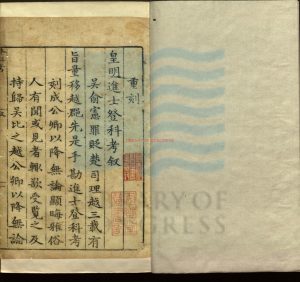 重刻
皇明進士登科考叙
吳俞憲罪貶楚司理越三載有
旨量移越郡先是手勘進士登科考
刻成公卿以降無論顯晦雅俗
人有聞或見者輒欲受覽之及
持歸吳比之越公卿以降無論
LIBRARY OF
CONGRESS